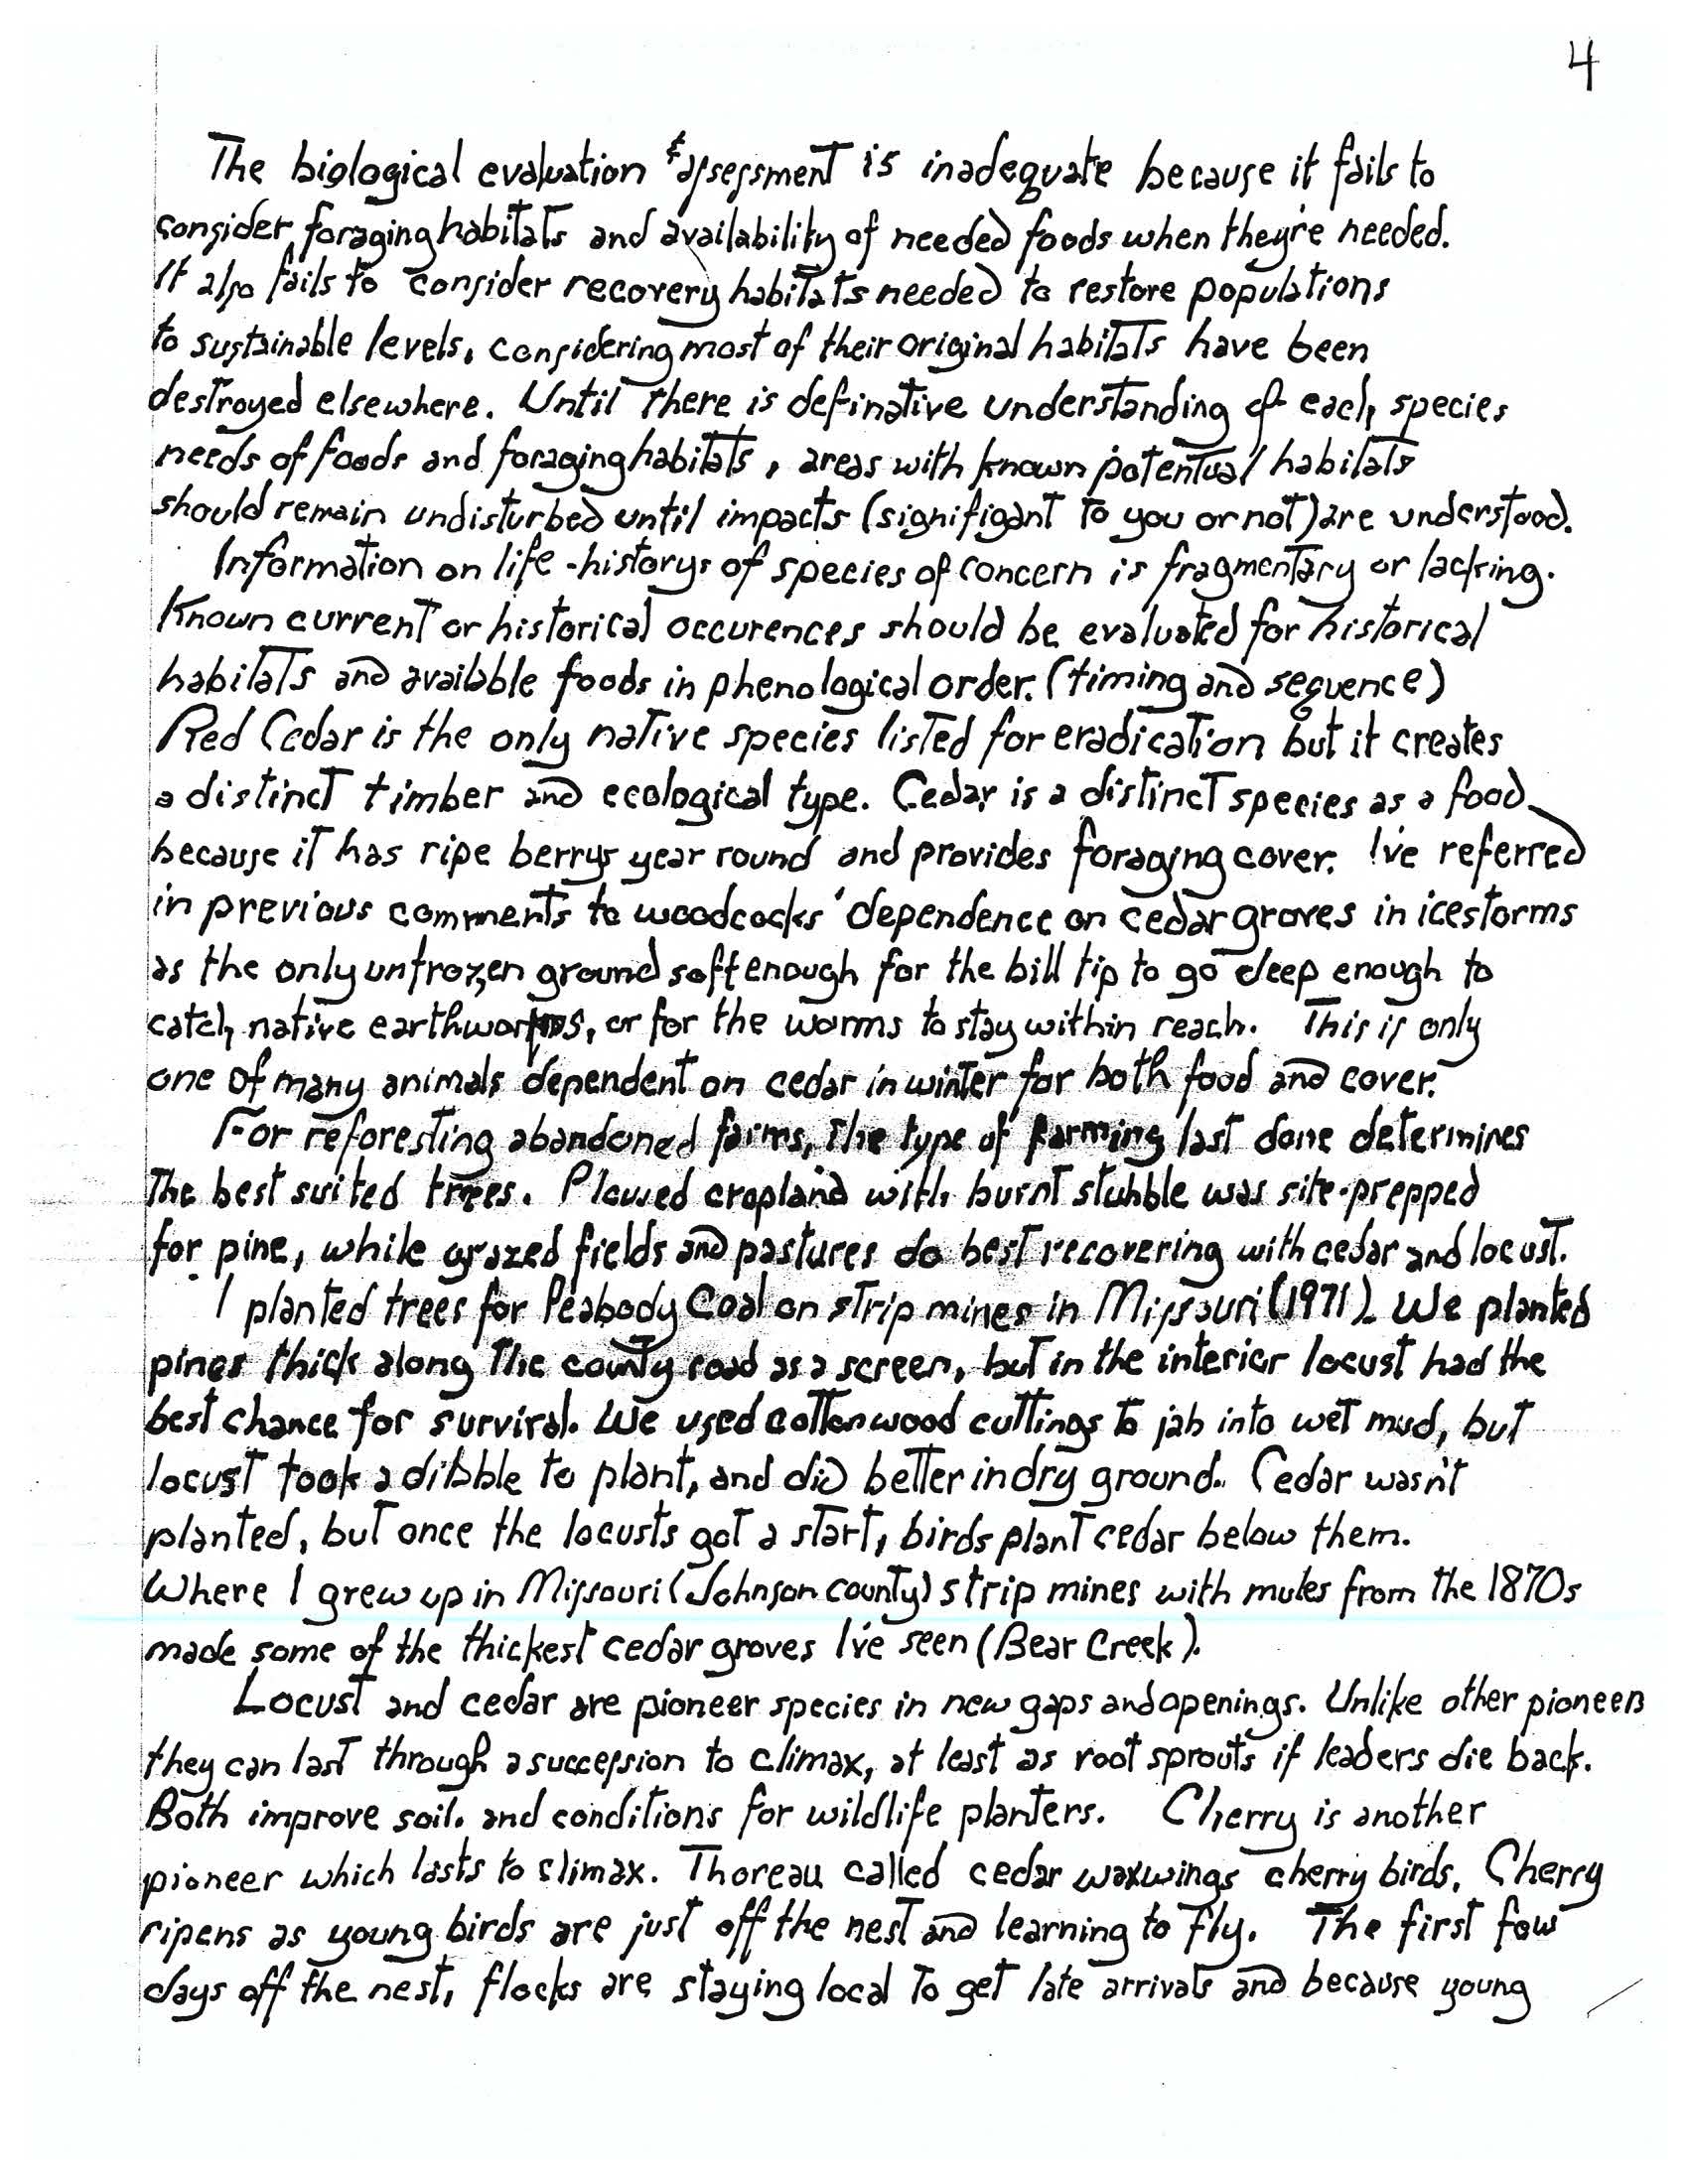 4
The biological evaluation & assessment is inadequate because it fails to
consider foraging habitats and availability of needed foods when they're needed.
It also fails to consider recovery habitats needed to restore populations
to sustainable levels, considering most of their original habitats have been
destroyed elsewhere. Until there is definative understanding of each species
needs of foods and foraging habitats, areas with known potential habitats
should remain undisturbed until impacts (signifigant to you or not) are understood.
Information on life-historys of species of concern is fragmentary or lacking.
Known current or historical occurences should be evaluated for historical
habitats and available foods in phenological order. (timing and sequence)
Red Cedar is the only native species listed for eradication but it creates
a distinct timber and ecological type. Cedar is a distinct species as a food
because it has ripe berrys year round and provides foraging cover. I've referred
in previous comments to woodcocks' dependence on cedar groves in icestorms
as the only unfrozen ground soft enough for the bill tip to go deep enough to
catch native earthworms, or for the worms to stay within reach. This is only
one of many animals dependent on cedar in winter for both food and cover.
For reforesting abandoned farms, the type of farming last done determines
the best suited trees. Plowed cropland with burnt stubble was site-prepped
for pine, while grazed fields and pastures do best recovering with cedar and locust.
I planted trees for Peabody Coal on strip mines in Missouri (1971). We planted
pines thick along the county road as a screen, but in the interior locust had the
best chance for survival. We used cottonwood cuttings to jab into wet mud, but
locust took a dibble to plant, and did better in dry ground. Cedar wasn't
planted, but once the locusts got a start, birds plant cedar below them.
Where I grew up in Missouri (Johnson county) strip mines with mules from the 1870s
made some of the thickest cedar groves I've seen (Bear Creek).
Locust and cedar are pioneer species in new gaps and openings. Unlike other pioneers
they can last through a succession to climax, at least as root sprouts if leaders die back.
Both improve soil. and conditions for wildlife planters. Cherry is another
pioneer which lasts to climax. Thoreau called cedar waxwings cherry birds. Cherry
ripens as young birds are just off the nest and learning to fly. The first few
days off the nest, flocks are staying local to get late arrivals and because young